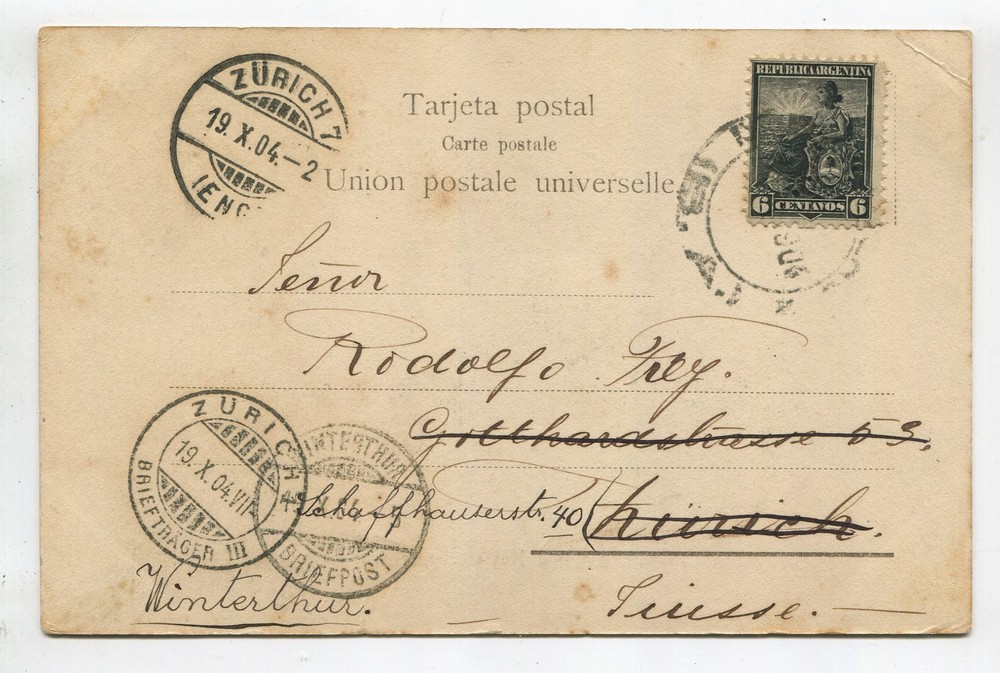 ZÜRICH 7
19. X. 04. – 2
(ENG
Tarjeta postal
Carte postale
Union postale universelle
REPUBLICA ARGENTINA
6 CENTAVOS 6
Señor
Rodolfo Frey.
Gotthardstrasse 53.
Schaffhauserstr. 40 Zürich.
ZÜRICH
19. X. 04. VII
BRIEFTRÄGER III
WINTERTHUR
BRIEFPOST
Winterthur.
Suisse.